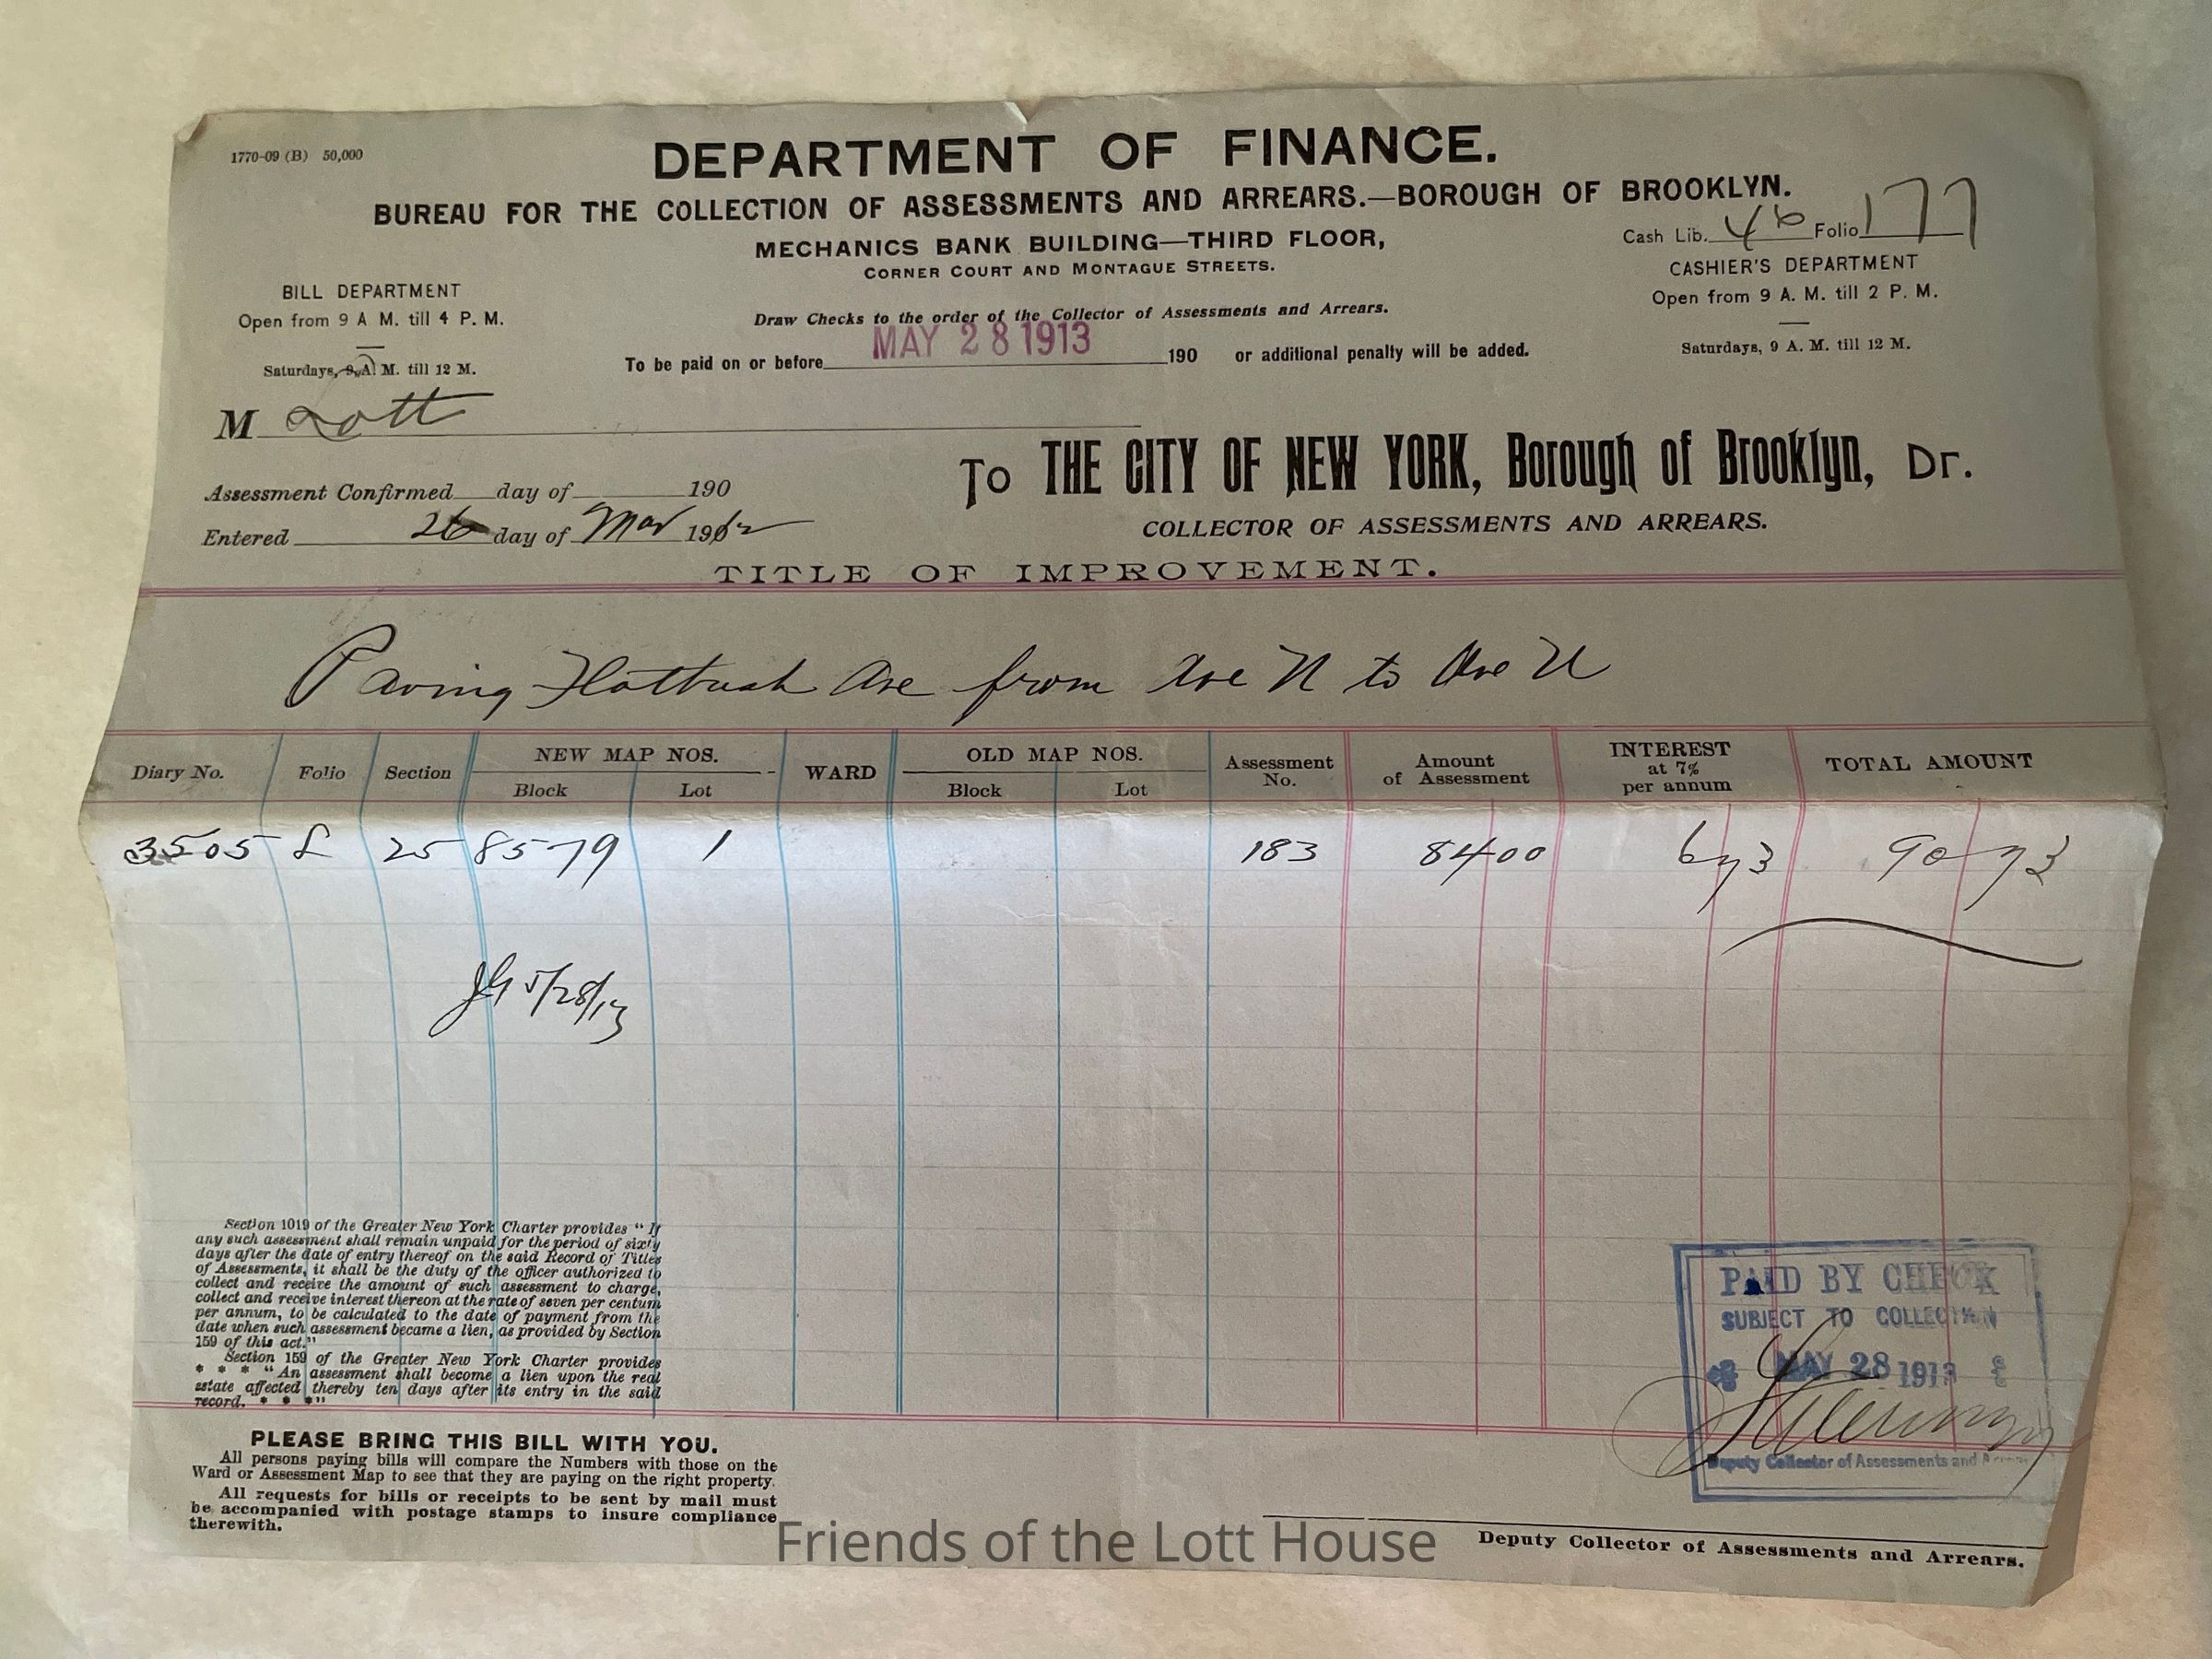 1770-09 (B) 50,000
DEPARTMENT OF FINANCE.
BUREAU FOR THE COLLECTION OF ASSESSMENTS AND ARREARS.—BOROUGH OF BROOKLYN.
MECHANICS BANK BUILDING—THIRD FLOOR,
CORNER COURT AND MONTAGUE STREETS.
Cash Lib. 46 Folio 177
BILL DEPARTMENT
Open from 9 A M. till 4 P. M.
Saturdays, 9 A. M. till 12 M.
CASHIER'S DEPARTMENT
Open from 9 A. M. till 2 P. M.
Saturdays, 9 A. M. till 12 M.
Draw Checks to the order of the Collector of Assessments and Arrears.
To be paid on or before MAY 28 1913 190 or additional penalty will be added.
M Lott
To THE CITY OF NEW YORK, Borough of Brooklyn, Dr.
COLLECTOR OF ASSESSMENTS AND ARREARS.
Assessment Confirmed day of 190
Entered 26 day of Mar 1912
TITLE OF IMPROVEMENT.
Paving Flatbush Ave from Ave N to Ave U
Diary No. Folio Section NEW MAP NOS. Block Lot WARD OLD MAP NOS. Block Lot Assessment No. Amount of Assessment INTEREST at 7% per annum TOTAL AMOUNT
3505 25 8579 1 183 84 00 6 73 90 73
5/28/13
Section 1019 of the Greater New York Charter provides "If
any such assessment shall remain unpaid for the period of sixty
days after the date of entry thereof on the said Record of Titles
of Assessments, it shall be the duty of the officer authorized to
collect and receive the amount of such assessment to charge,
collect and receive interest thereon at the rate of seven per centum
per annum, to be calculated to the date of payment from the
date when such assessment became a lien, as provided by Section
159 of this act."
Section 159 of the Greater New York Charter provides
* * * "An assessment shall become a lien upon the real
estate affected thereby ten days after its entry in the said
record. * * *"
PAID BY CHECK
SUBJECT TO COLLECTION
MAY 28 1913
Deputy Collector of Assessments and Arrears
PLEASE BRING THIS BILL WITH YOU.
All persons paying bills will compare the Numbers with those on the
Ward or Assessment Map to see that they are paying on the right property.
All requests for bills or receipts to be sent by mail must
be accompanied with postage stamps to insure compliance
therewith.
Deputy Collector of Assessments and Arrears.
Friends of the Lott House